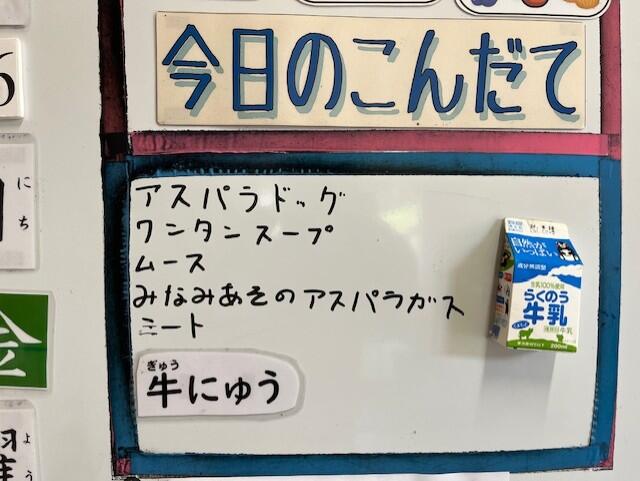 今日のこんだて
アスパラドッグ
ワンタンスープ
ムース
みなみあそのアスパラガス
ミート
ぎゅう
牛にゅう
自然が
いっぱい
成分無調整
生乳100%使用
らくのう
牛乳
200ml
6
にち
金
よう